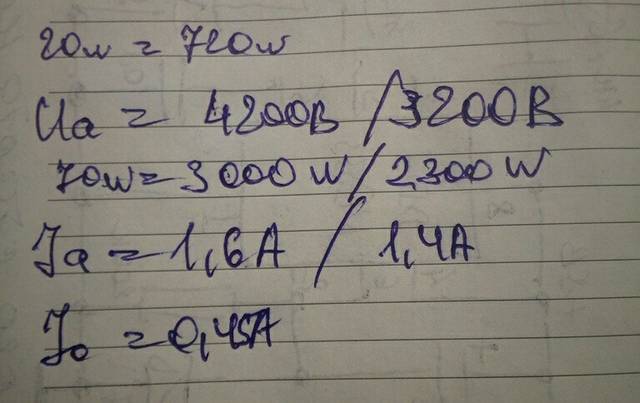 20w = 720w
Ua = 4200В / 3200В
70w = 3000W / 2300W
Ja = 1,6А / 1,4А
Jo = 0,45А